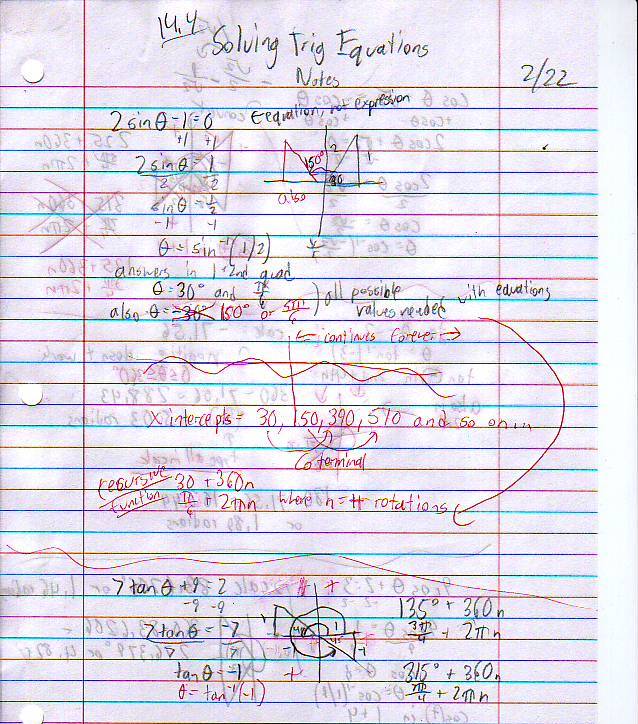 14.4
Solving Trig Equations
Notes
2/22
2 sin θ - 1 = 0 equation, not expression
+1 +1
2 sin θ = 1
2 2
sin θ = 1/2
150° 2 1 30
also
θ = sin⁻¹(1/2) y/r
answers in 1 + 2nd quad
θ = 30° and π/6 ) all possible values needed with equations
also θ = 150° or 5π/6
← continues forever →
X intercepts = 30, 150, 390, 510 and so on
Coterminal
recursive function 30 + 360n
+ 2πn where n = # rotations
7 tan θ + 9 = 2
-9 -9
7 tan θ = -7
7 7
tan θ = -1
θ = tan⁻¹(-1)
135° + 360n
3π/4 + 2πn
315° + 360n
π/4 + 2πn